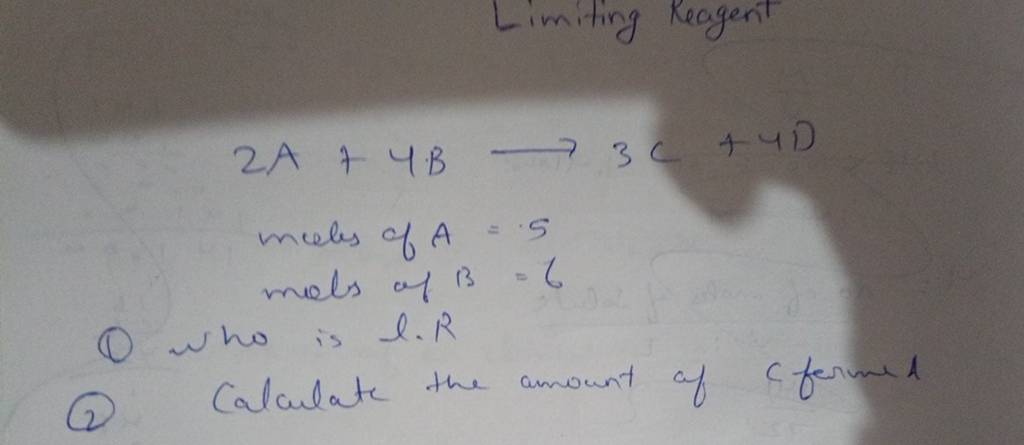 Limiting Reagent
2A + 4B → 3C + 4D
moles of A = 5
mols of B = 6
① who is l.R
② Calculate the amount of C formed